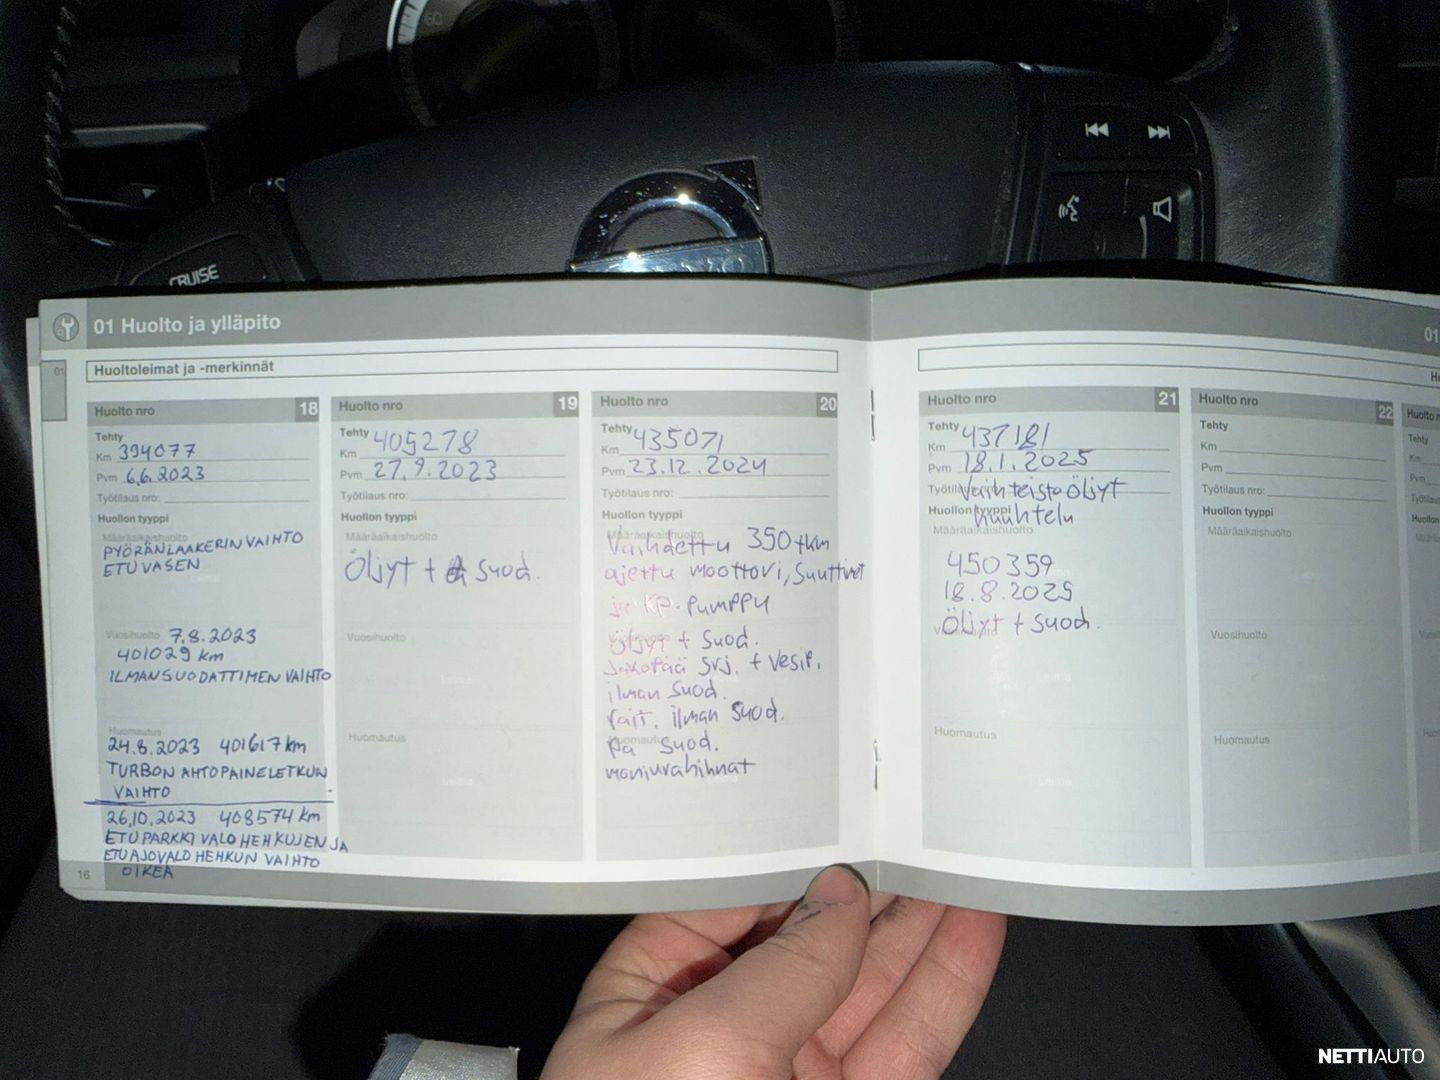 60
CRUISE
01 Huolto ja ylläpito
01
01
Huoltoleimat ja -merkinnät
Huolto nro 18
Tehty
Km 394077
Pvm 6.6.2023
Työtilaus nro:
Huollon tyyppi
Määräaikaishuolto
PYÖRÄNLAAKERIN VAIHTO
ETU VASEN
Vuosihuolto 7.8.2023
401029 km
ILMANSUODATTIMEN VAIHTO
Huomautus
24.8.2023 401617 km
TURBON AHTOPAINELETKUN
VAIHTO
26.10.2023 408574 km
ETU PARKKI VALO HEHKUJEN JA
ETU AJOVALO HEHKUN VAIHTO
OIKEA
16
Huolto nro 19
Tehty
Km 405278
Pvm 27.9.2023
Työtilaus nro:
Huollon tyyppi
Määräaikaishuolto
Öljyt + suod.
Vuosihuolto
Leima
Huomautus
Leima
Huolto nro 20
Tehty
Km 435071
Pvm 23.12.2024
Työtilaus nro:
Huollon tyyppi
Määräaikaishuolto
Vaihdettu 350 tkm
ajettu moottori, suuttimet
ja KP-pumppu
Öljyt + suod.
Jakopää srj. + vesip.
ilman suod.
rait. ilman suod.
Huomautus
pa suod.
moniurahihnat
Huolto nro 21
Tehty
Km 437181
Pvm 18.1.2025
Vaihteisto öljyt
Huollon tyyppi
huuhtelu
Määräaikaishuolto
450359
18.8.2025
Öljyt + suod.
Huomautus
Leima
Huolto nro 22
Tehty
Km
Pvm
Työtilaus nro:
Huollon tyyppi
Määräaikaishuolto
Vuosihuolto
Huomautus
Tehty
Km
Pvm
NETTIAUTO